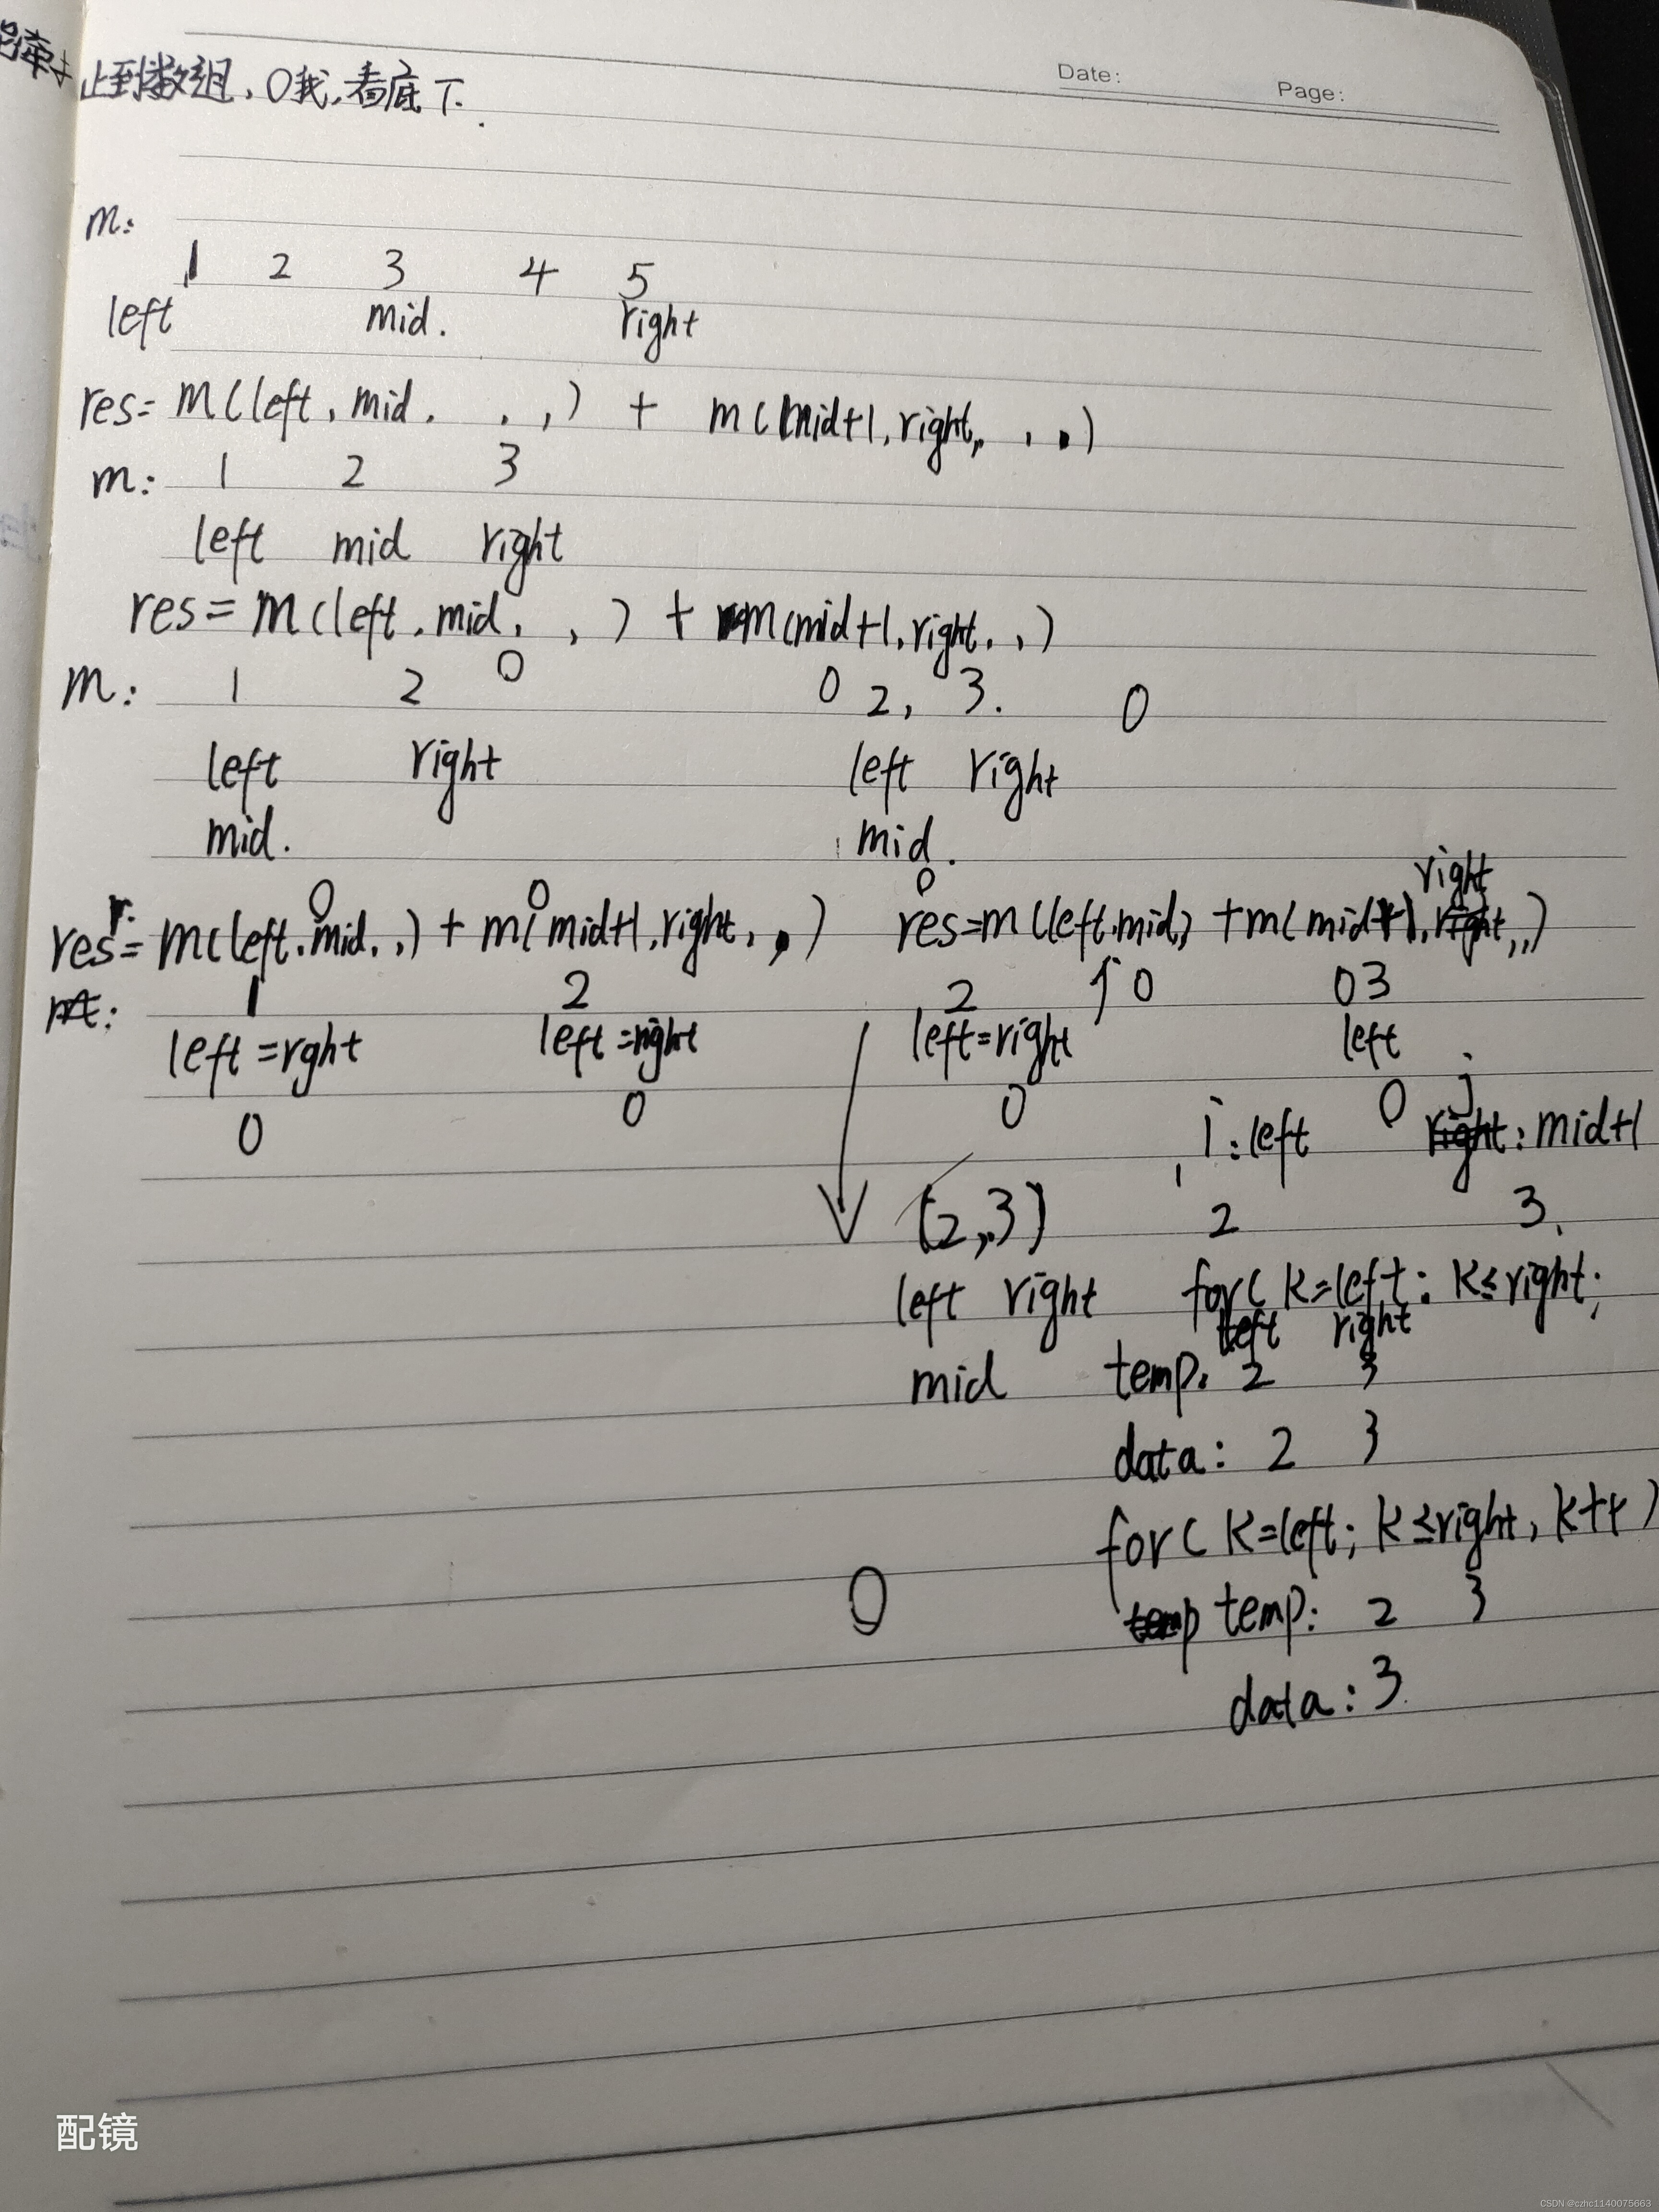 止到数组,0我,看底下.
Date:
Page:
m:
1 2 3 4 5
left mid. right
res= m(left, mid, , ,) + m(mid+1, right, , ,)
m: 1 2 3
left mid right
res= m(left, mid, , ,) + m(mid+1, right, , ,)
0
m: 1 2 0 2, 3. 0
left right left right
mid. mid.
0 0 0 right
res= m(left, mid, ,) + m(mid+1, right, , ,) res=m(left, mid,) +m(mid+1, right, ,)
1 2 2 0 03
left =rght left =right left=right left
0 0 0 0 j
i:left right: midt1
(2,3) 2 3.
left right for( k=left: k≤right;
left right
mid temp. 2 3
data: 2 3
for( k=left; k≤right, k++)
0 temp temp: 2 3
data: 3
配镜
CSDN @czhc1140075663